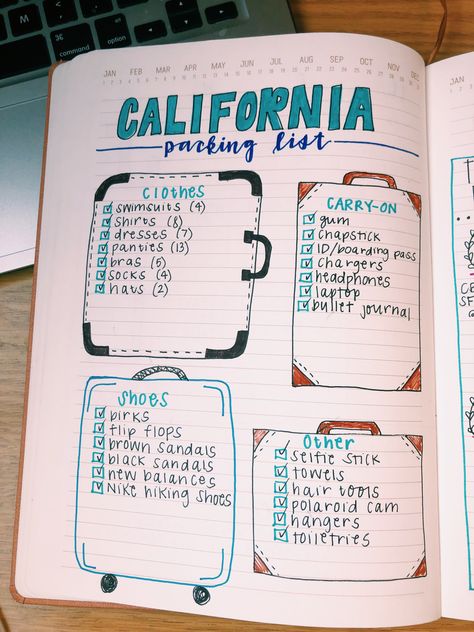 control
option
command
JAN FEB MAR APR MAY JUN JUL AUG SEP OCT NOV DEC
CALIFORNIA
packing list
Clothes
swimsuits (4)
shirts (8)
dresses (7)
panties (13)
bras (5)
socks (4)
hats (2)
CARRY-ON
gum
chapstick
ID/boarding pass
chargers
headphones
laptop
bullet journal
Shoes
birks
flip flops
brown sandals
black sandals
new balances
Nike hiking shoes
Other
selfie stick
towels
hair tools
polaroid cam
hangers
toiletries
JAN